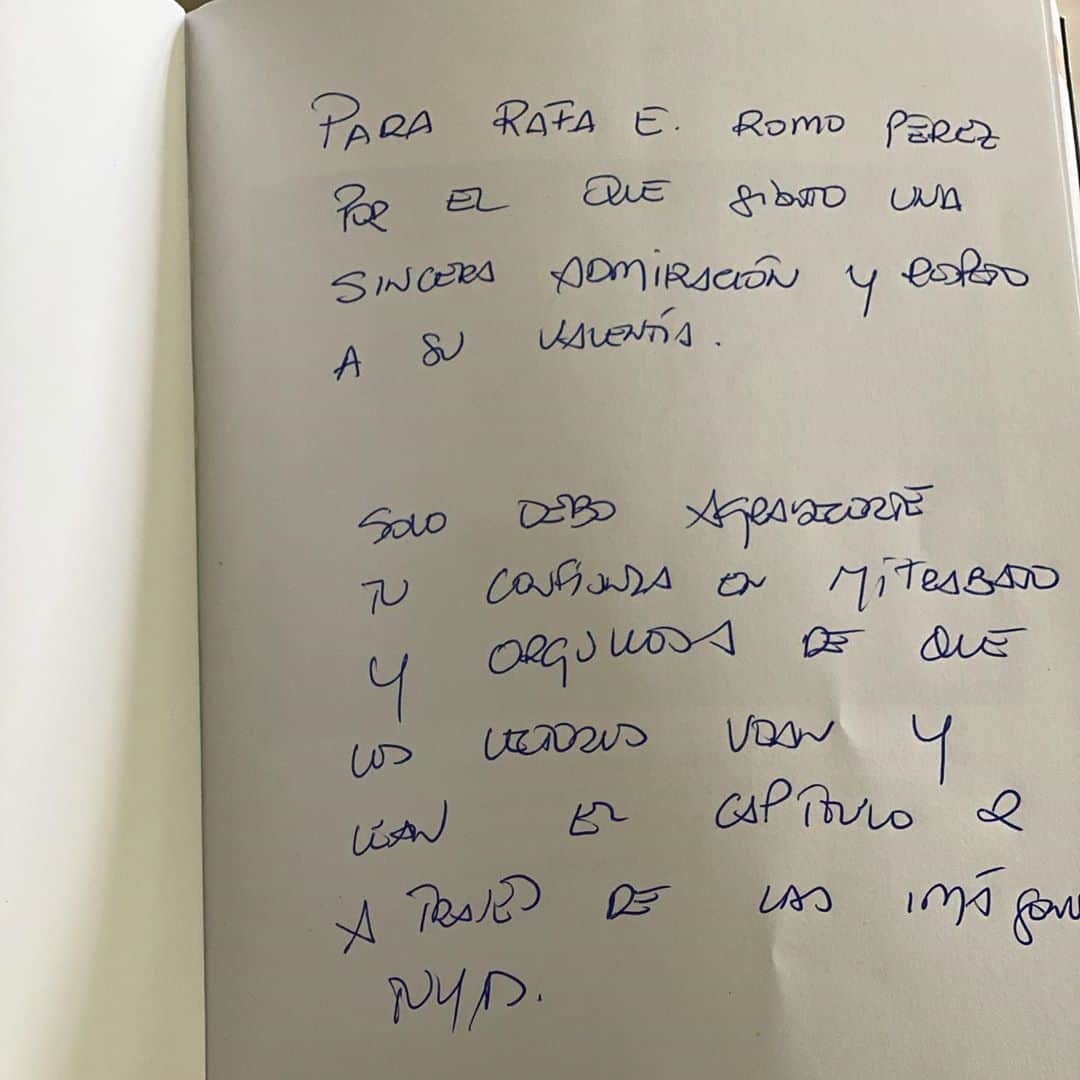 PARA RAFA E. ROMO PEREZ
POR EL QUE SIENTO UNA
SINCERA ADMIRACIÓN Y RESPETO
A SU VALENTÍA.
SOLO DEBO AGRADECERTE
TU CONFIANZA EN MI TRABAJO
Y ORGULLOSA DE QUE
LOS LECTORES VEAN Y
LEAN EL CAPÍTULO 2
A TRAVES DE LAS IMÁGENES